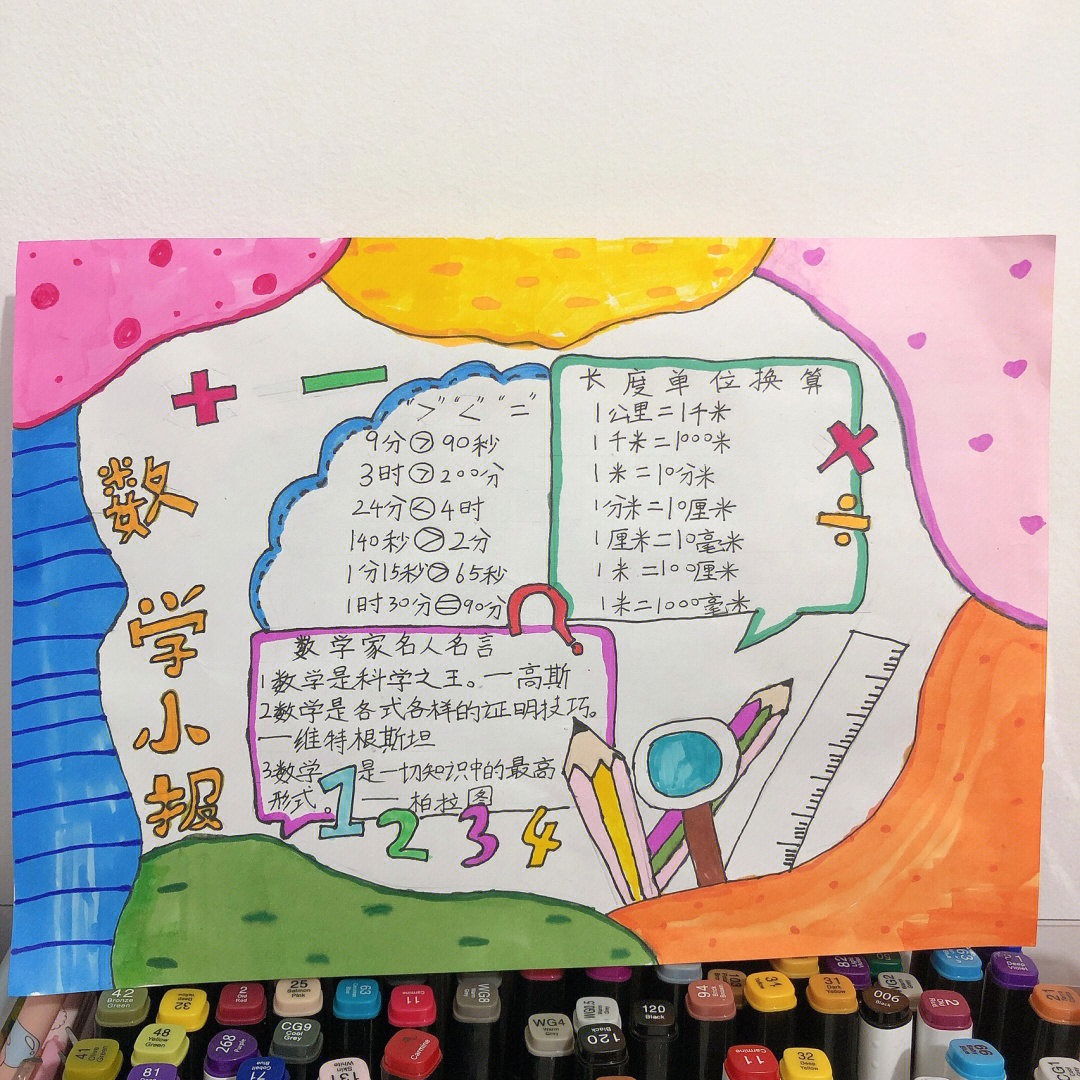 数学小报
+ −
">" "<" "="
9分>90秒
3时>200分
24分<4时
140秒>2分
1分15秒>65秒
1时30分=90分
长度单位换算
1公里=1千米
1千米=1000米
1米=10分米
1分米=10厘米
1厘米=10毫米
1米=100厘米
1米=1000毫米
×
÷
?
数学家名人名言
1数学是科学之王。—高斯
2数学是各式各样的证明技巧。
—维特根斯坦
3数学是一切知识中的最高
形式。—柏拉图
1 2 3 4
42 Bronze Green
32 Deep Yellow
2 Old Red
25 Salmon Pink
63
11
WG8
94
31
31 Dark Yellow
900
2
1 Deep Violet
48 Yellow Green
CG9 Cool Grey
WG4
120 Black
120 Black
41 Olive Green
268 Purple
Carmine
11 Carmine
32 Deep Yellow
81
71 Cobalt Blue
131 Skin White
CG1